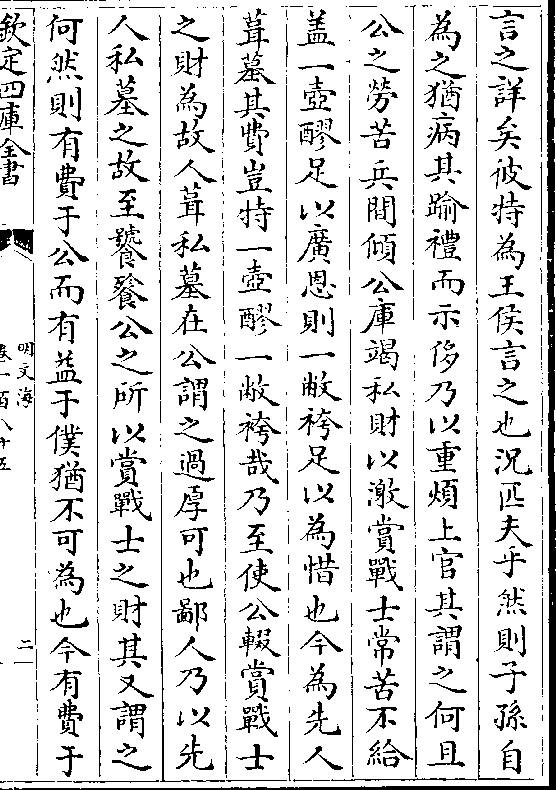 言之詳矣彼特為王侯言之也況匹夫乎然則子孫自
為之猶病其踰禮而示侈乃以重煩上官其謂之何且
公之勞苦兵間傾公庫竭私財以激賞戰士常苦不給
盖一壺醪足以廣恩則一敝袴足以為惜也今為先人
葺墓其費豈特一壺醪一敝袴哉乃至使公輟賞戰士
之財為故人葺私墓在公謂之過厚可也鄙人乃以先
人私墓之故至饕餮公之所以賞戰士之財其又謂之
何然則有費于公而有益于僕猶不可為也今有費于
欽定四庫全書
明文海
卷一百八十五
二